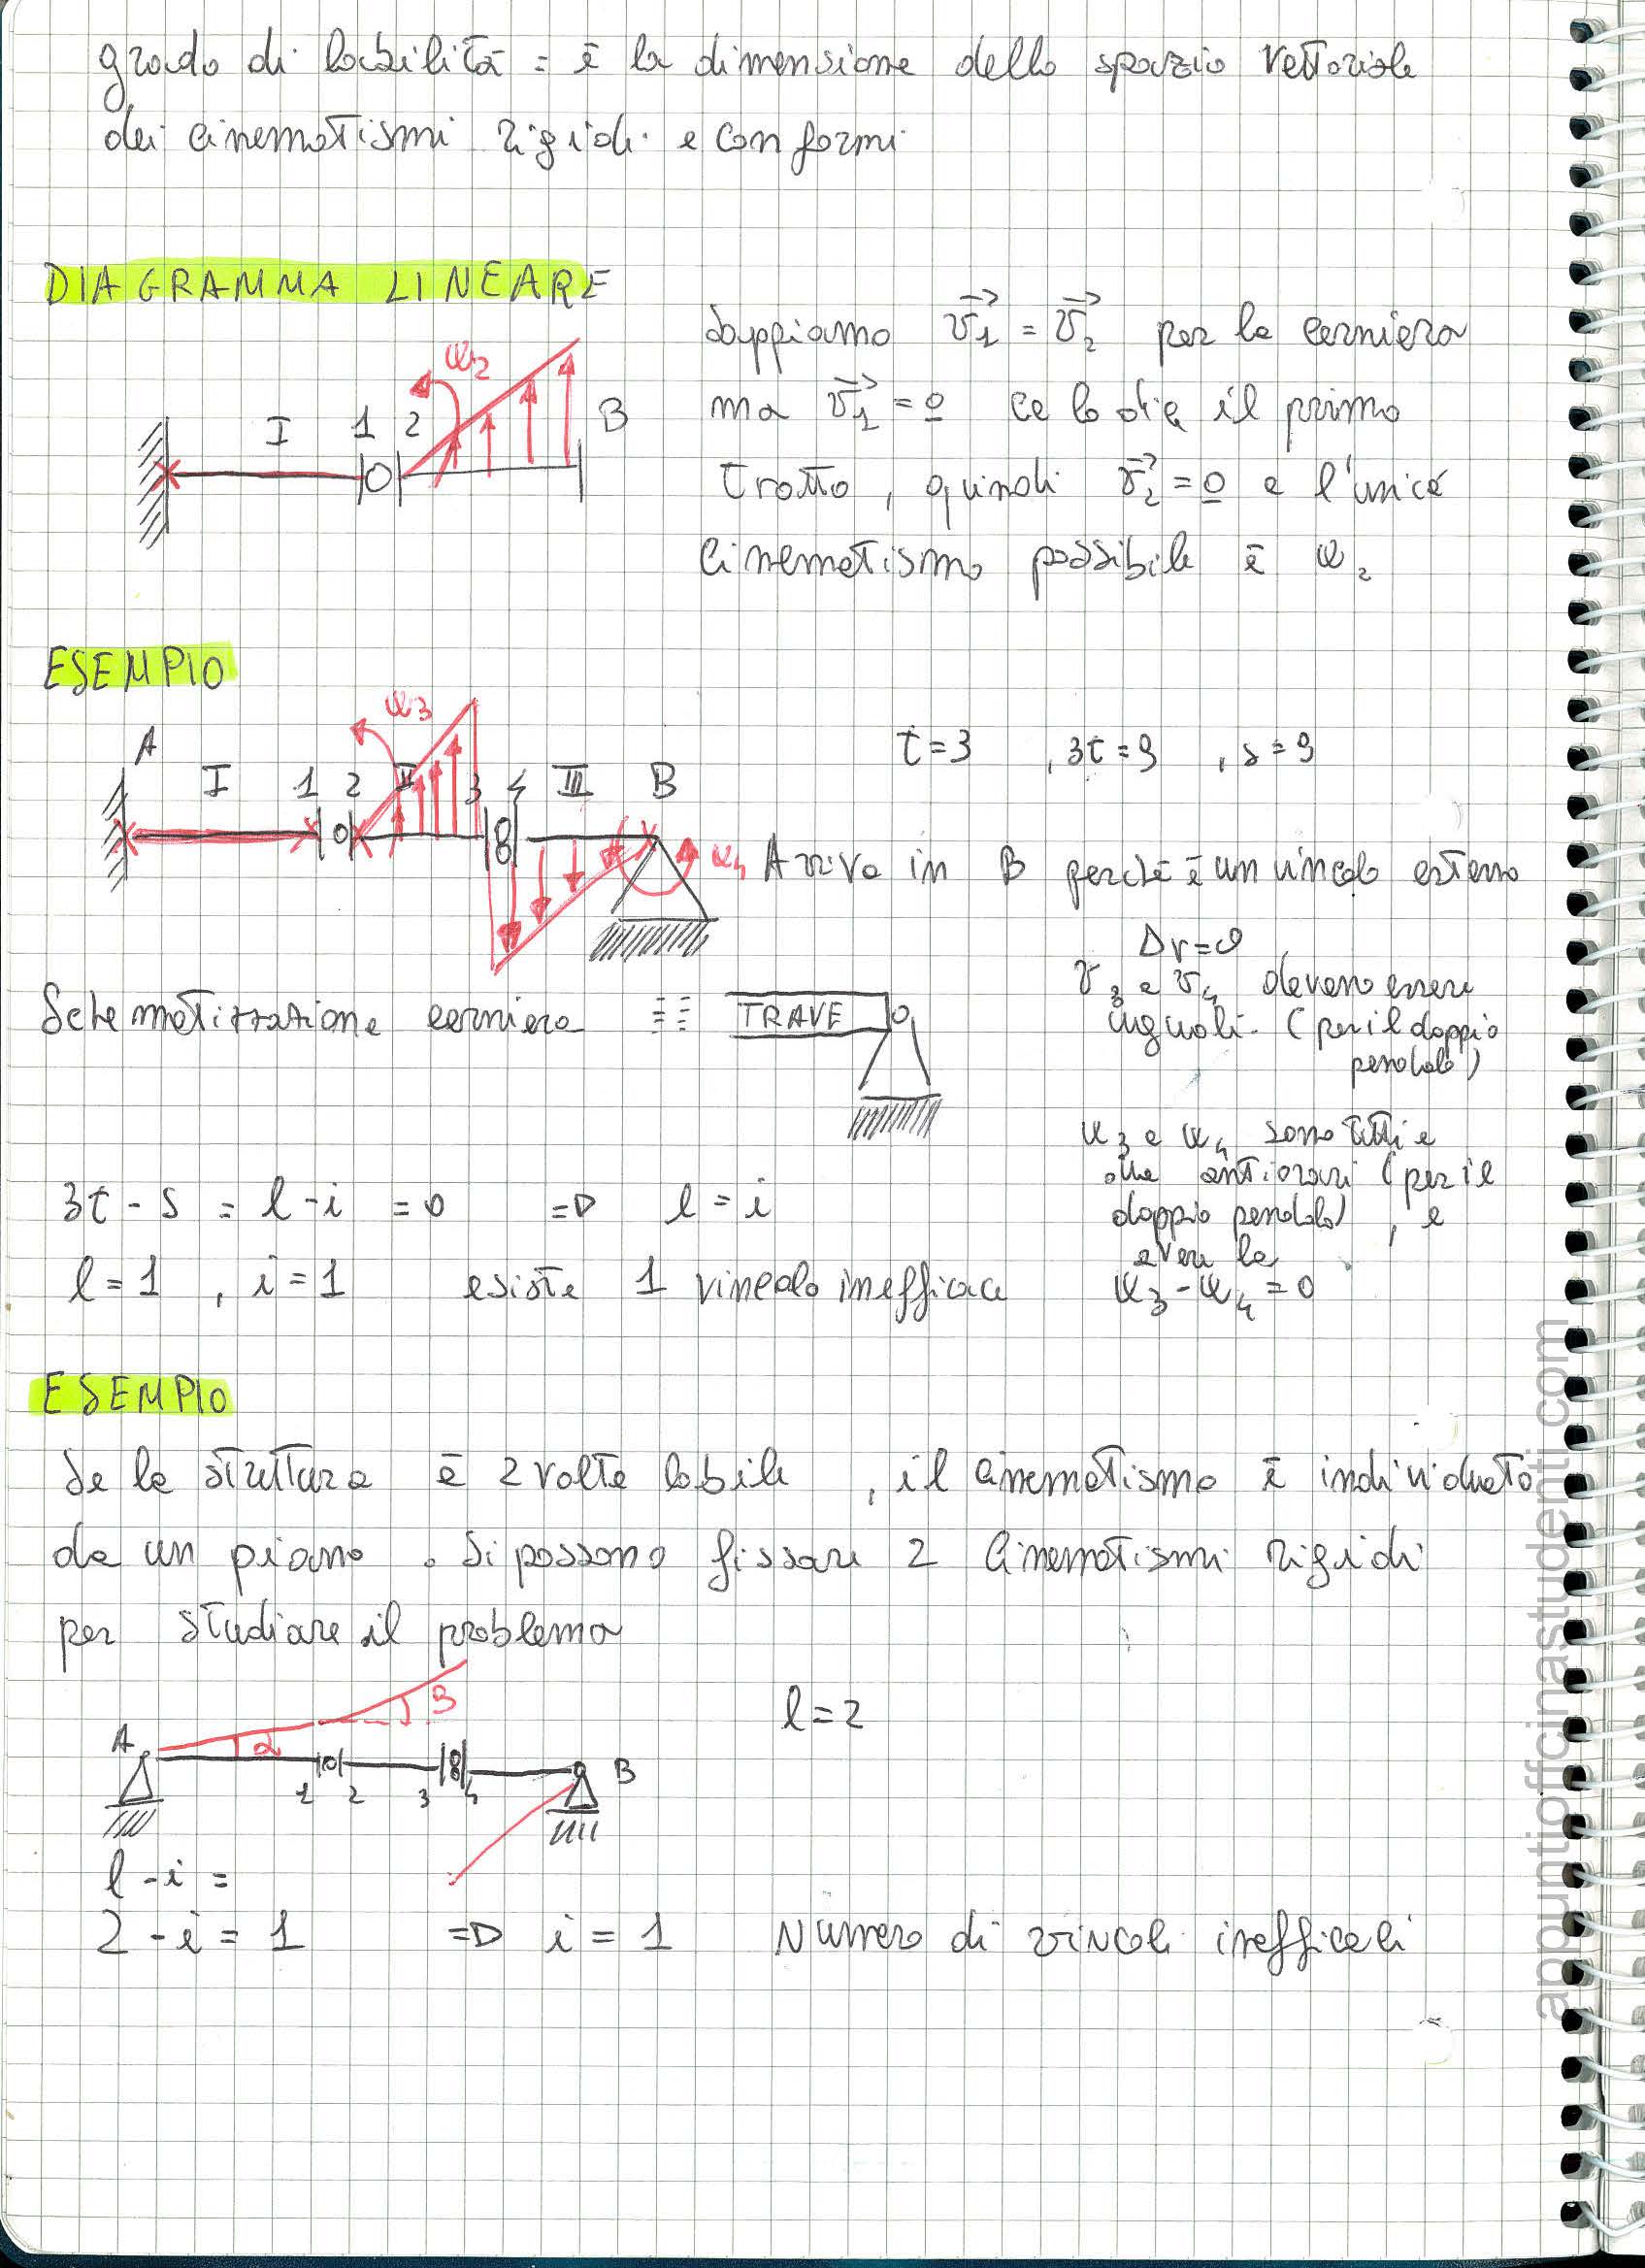 grado di labilità = è la dimensione dello spazio vettoriale
dei cinematismi rigidi e conformi
DIAGRAMMA LINEARE
ω2
I 1 2 B
Sappiamo v1 = v2 per la cerniera
ma v1 = 0 ce lo dice il primo
tratto, quindi v2 = 0 e l'unico
cinematismo possibile è ω2
ESEMPIO
ω3
A I 1 2 II 3 4 III B
ω4
t=3 , 3t=9 , s=9
Arriva in B perché è un vincolo esterno
Δv=0
v3 e v4 devono essere
uguali. (per il doppio
pendolo)
Schematizzazione cerniera ≡≡ TRAVE
ω3 e ω4 sono tutti e
due antiorari (per il
doppio pendolo), e
avere la
ω3 - ω4 = 0
3t - s = l - i = 0 => l = i
l = 1 , i = 1 esiste 1 vincolo inefficace
ESEMPIO
Se la struttura è 2 volte labile, il cinematismo è individuato
da un piano. Si possono fissare 2 cinematismi rigidi
per studiare il problema
A α β 1 2 3 4 B
l = 2
l - i =
2 - i = 1 => i = 1 Numero di vincoli inefficaci
appuntiofficinastudenti.com